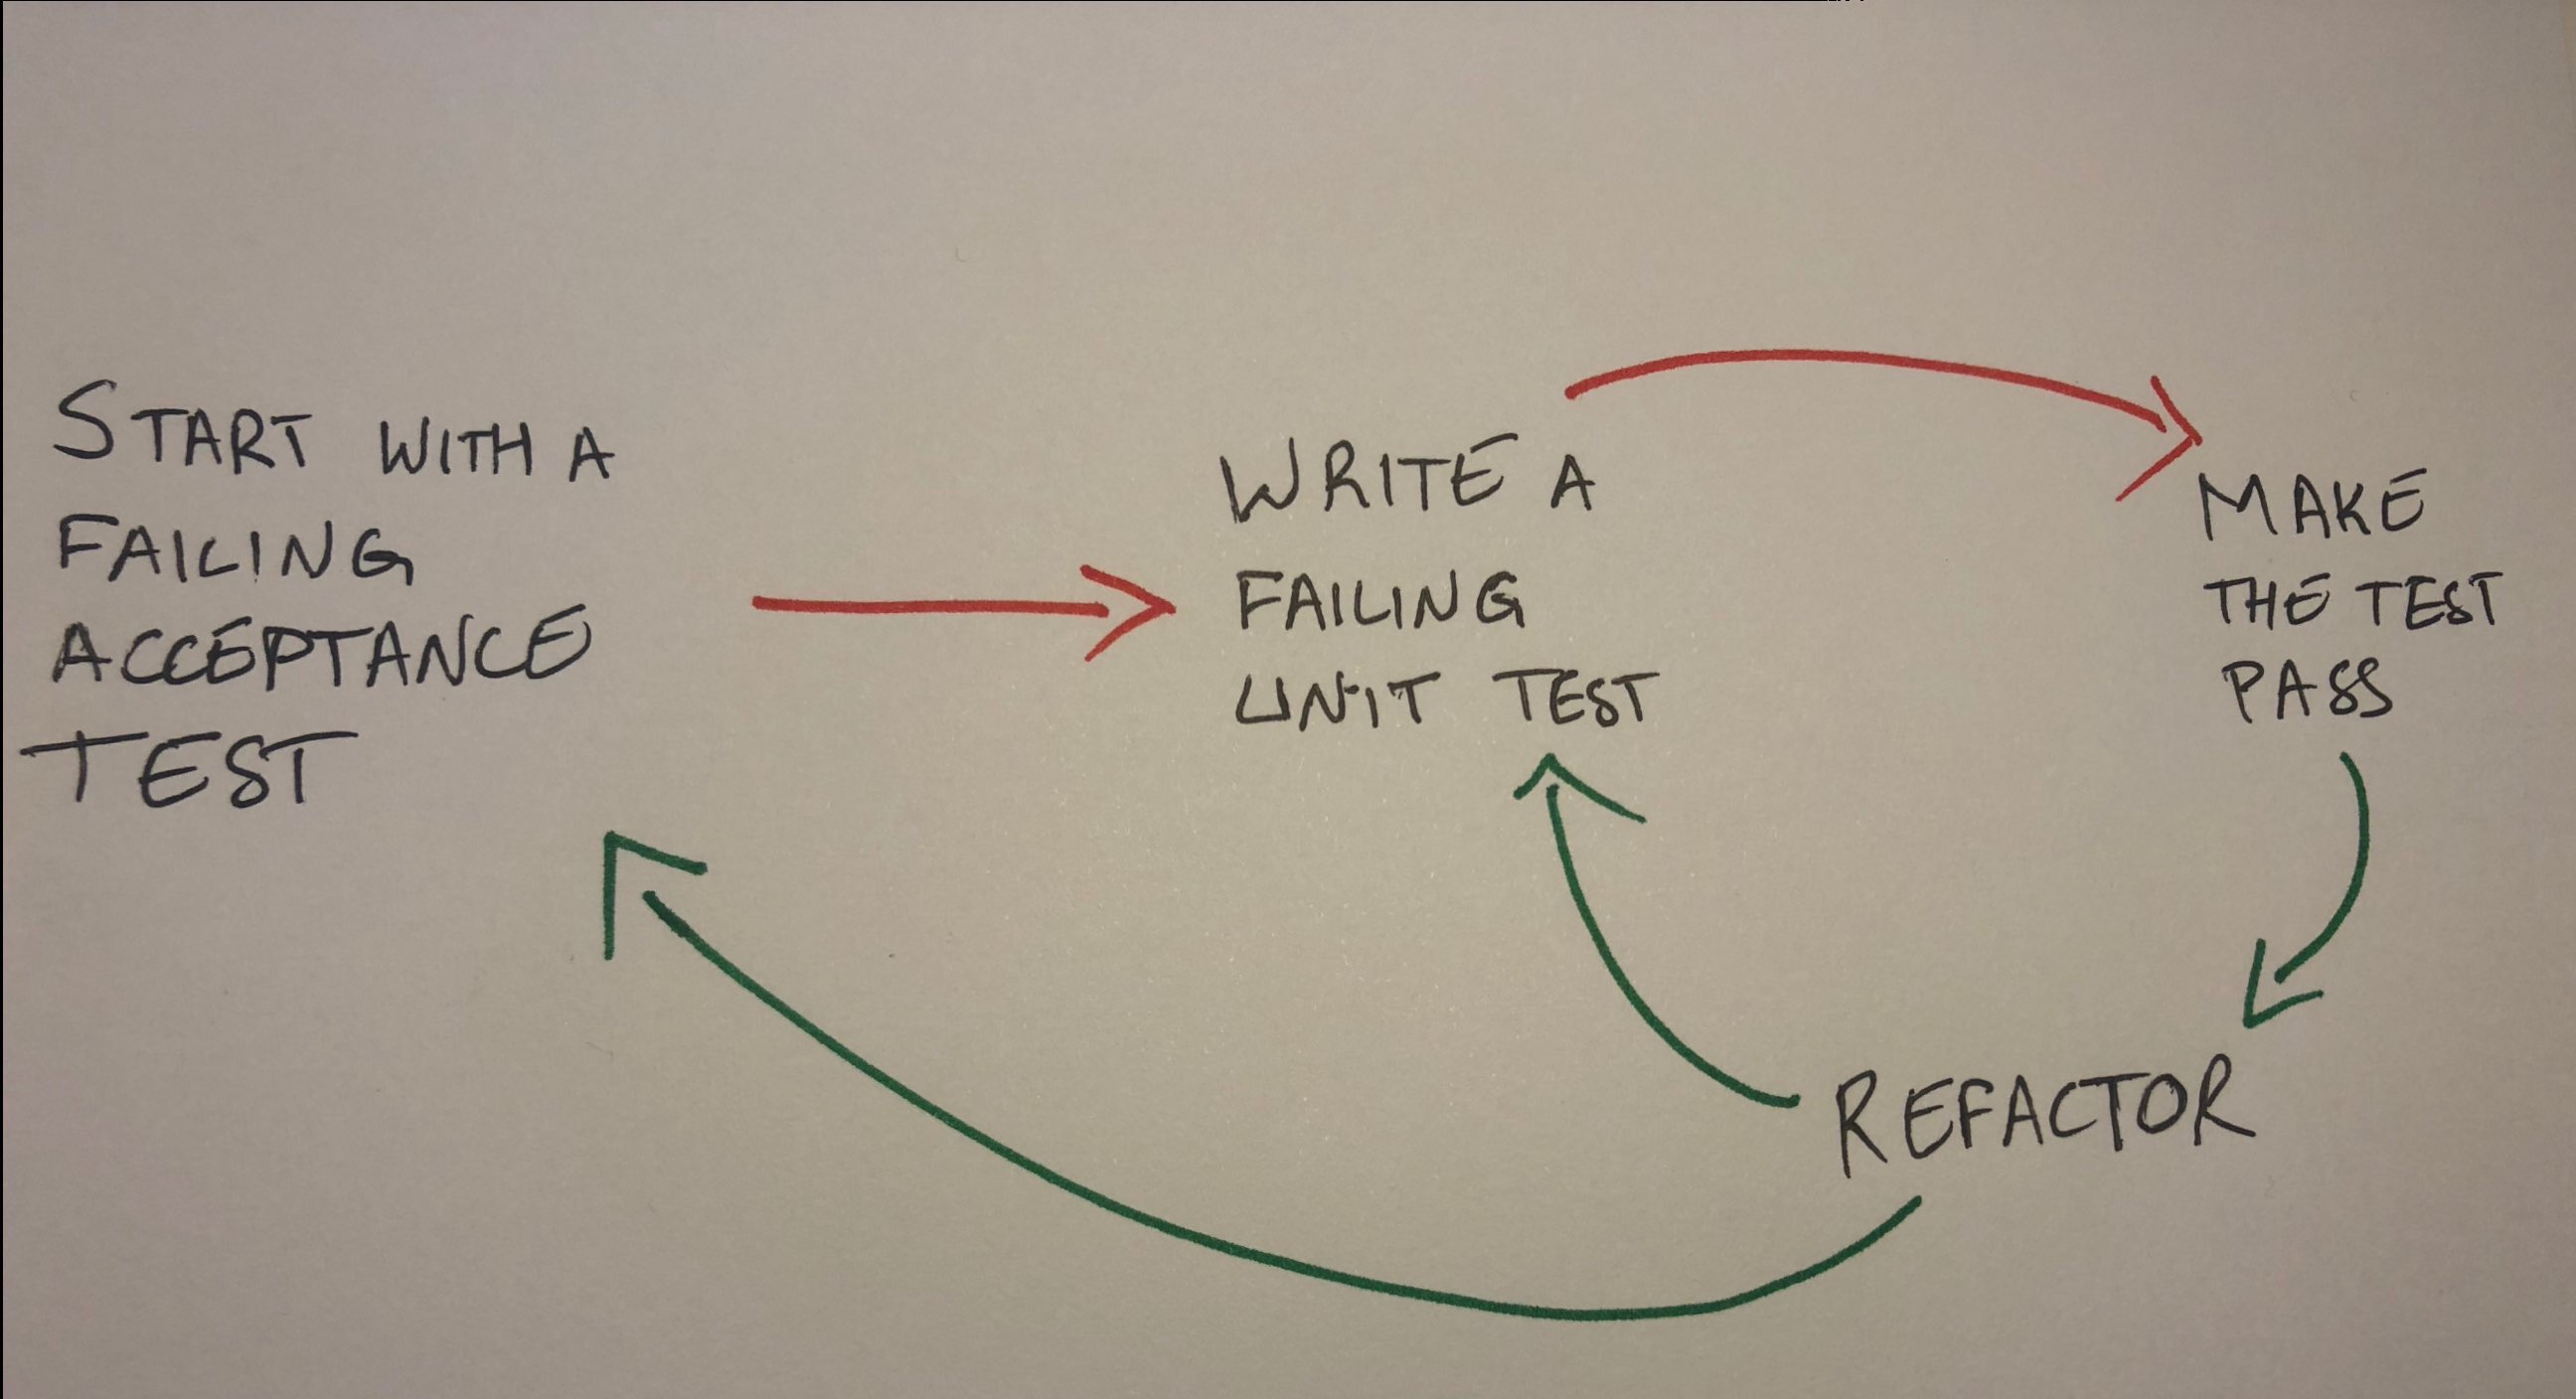 START WITH A
FAILING
ACCEPTANCE
TEST
WRITE A
FAILING
UNIT TEST
MAKE
THE TEST
PASS
REFACTOR